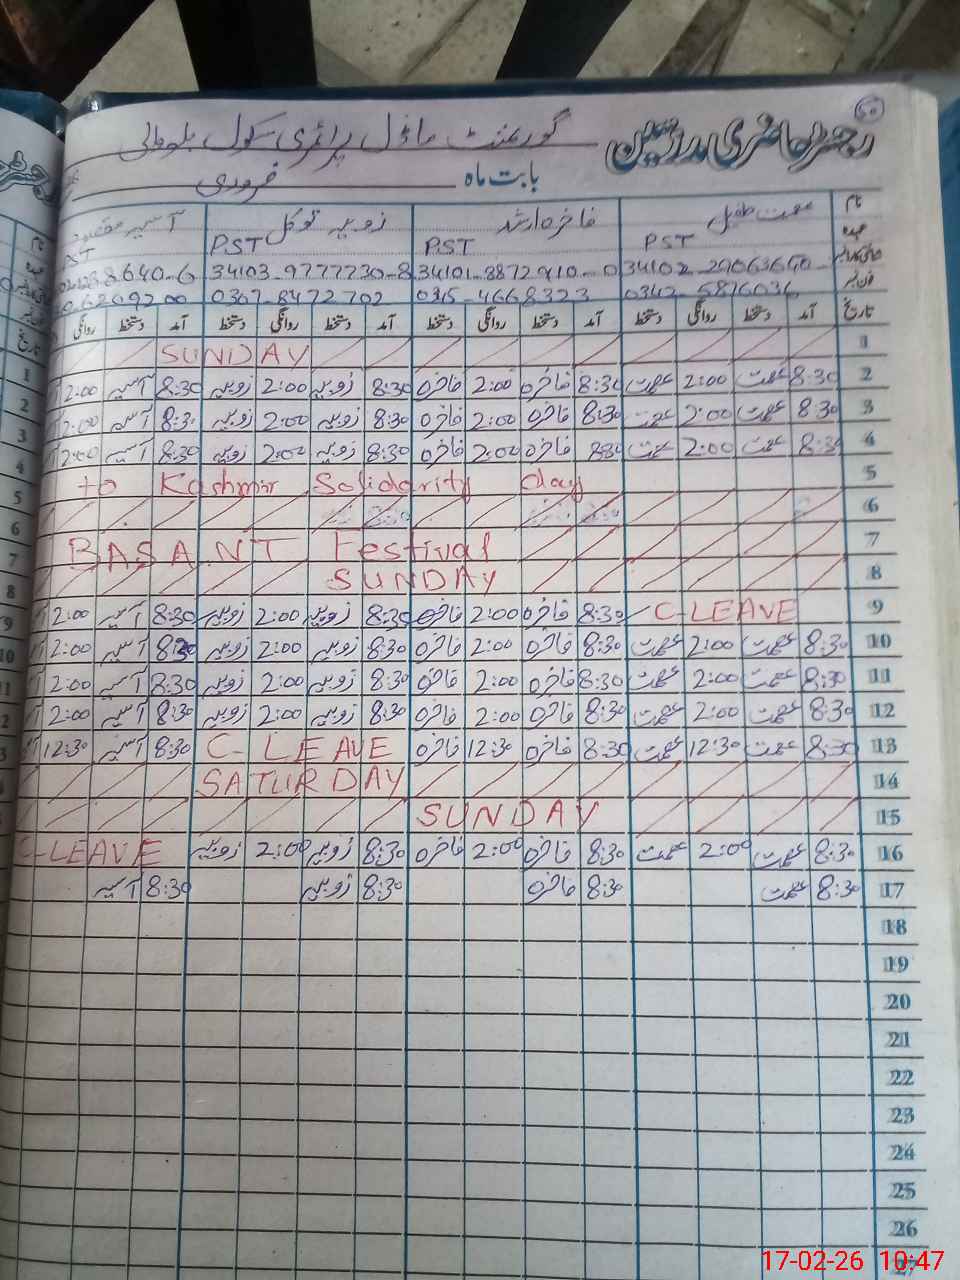 60
رجسٹر حاضری مدرسین گورنمنٹ ماڈل پرائمری سکول
بابت ماہ فروری
نام عصمت طفیل فاخرہ ارشد زوبیہ توکل آسیہ
عہدہ PST PST PST
34102-29063640- 34101-8872910-0 34103-9777730-8 8640-6
فون نمبر 0342-5876036 0345-4668323 0307-8472702 6209200
تاریخ آمد دستخط روانگی دستخط آمد دستخط روانگی دستخط آمد دستخط روانگی دستخط آمد دستخط روانگی
1 SUNDAY
2 8:30 عصمت 2:00 عصمت 8:30 فاخرہ 2:00 فاخرہ 8:30 زوبیہ 2:00 زوبیہ 8:30 آسیہ 2:00
3 8:30 عصمت 2:00 عصمت 8:30 فاخرہ 2:00 فاخرہ 8:30 زوبیہ 2:00 زوبیہ 8:30 آسیہ 2:00
4 8:30 عصمت 2:00 عصمت 830 فاخرہ 2:00 فاخرہ 8:30 زوبیہ 2:00 زوبیہ 8:30 آسیہ 2:00
5 to Kashmir Solidarity day
6
7 BASANT Festival
8 SUNDAY
9 C-LEAVE 8:30 فاخرہ 2:00 فاخرہ 8:30 زوبیہ 2:00 زوبیہ 8:30 آسیہ 2:00
10 8:30 عصمت 2:00 عصمت 8:30 فاخرہ 2:00 فاخرہ 8:30 زوبیہ 2:00 زوبیہ 8:30 آسیہ 2:00
11 8:30 عصمت 2:00 عصمت 8:30 فاخرہ 2:00 فاخرہ 8:30 زوبیہ 2:00 زوبیہ 8:30 آسیہ 2:00
12 8:30 عصمت 2:00 عصمت 8:30 فاخرہ 2:00 فاخرہ 8:30 زوبیہ 2:00 زوبیہ 8:30 آسیہ 2:00
13 8:30 عصمت 12:30 عصمت 8:30 فاخرہ 12:30 فاخرہ C-LEAVE 8:30 آسیہ 12:30
14 SATURDAY
15 SUNDAY
16 8:30 عصمت 2:00 عصمت 8:30 فاخرہ 2:00 فاخرہ 8:30 زوبیہ 2:00 زوبیہ C-LEAVE
17 8:30 عصمت 8:30 فاخرہ 8:30 زوبیہ 8:30 آسیہ
18
19
20
21
22
23
24
25
26
27
17-02-26 10:47